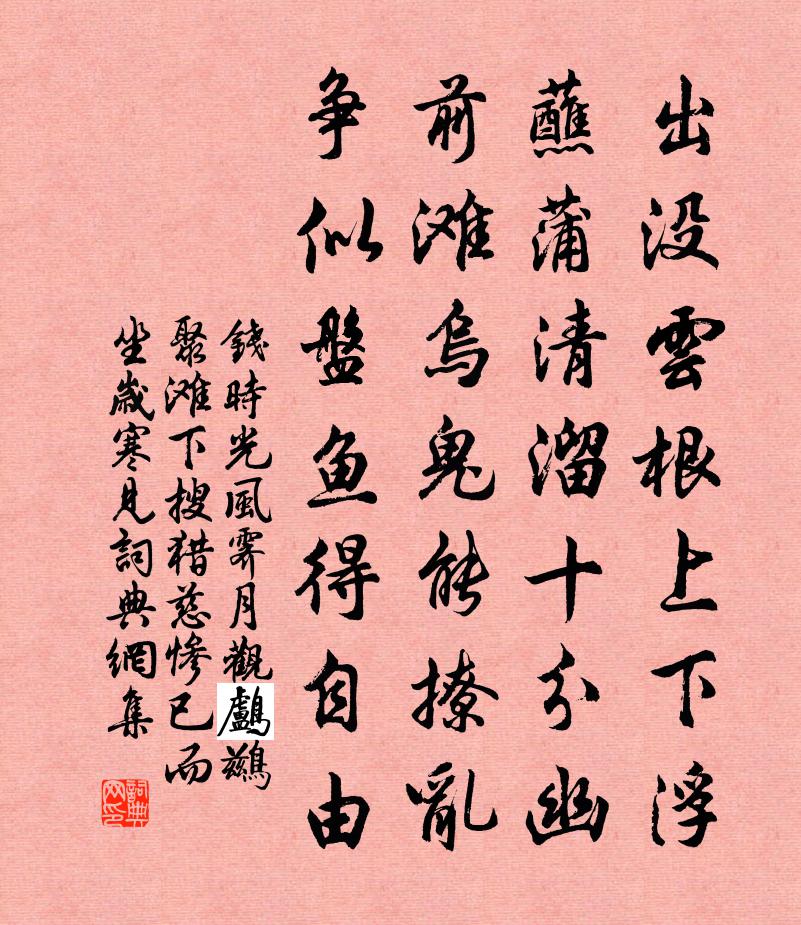 出没雲根上下浮
蘸蒲清溜十分幽
前滩烏鬼能撩亂
争似盤魚得自由
錢時光風霽月觀鸕鷀
聚滩下搜猎慈惨已而
坐歲寒見詞典網集
詞典网印